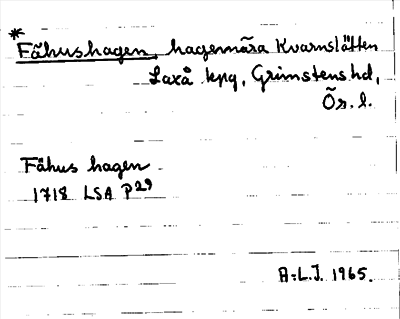 * Fähushagen, hagemnära Kvarnslätten
Laxå kpg, Grimstens hd,
Ör. l.
Fähus hagen
1718 LSA P29
A:L.J. 1965.